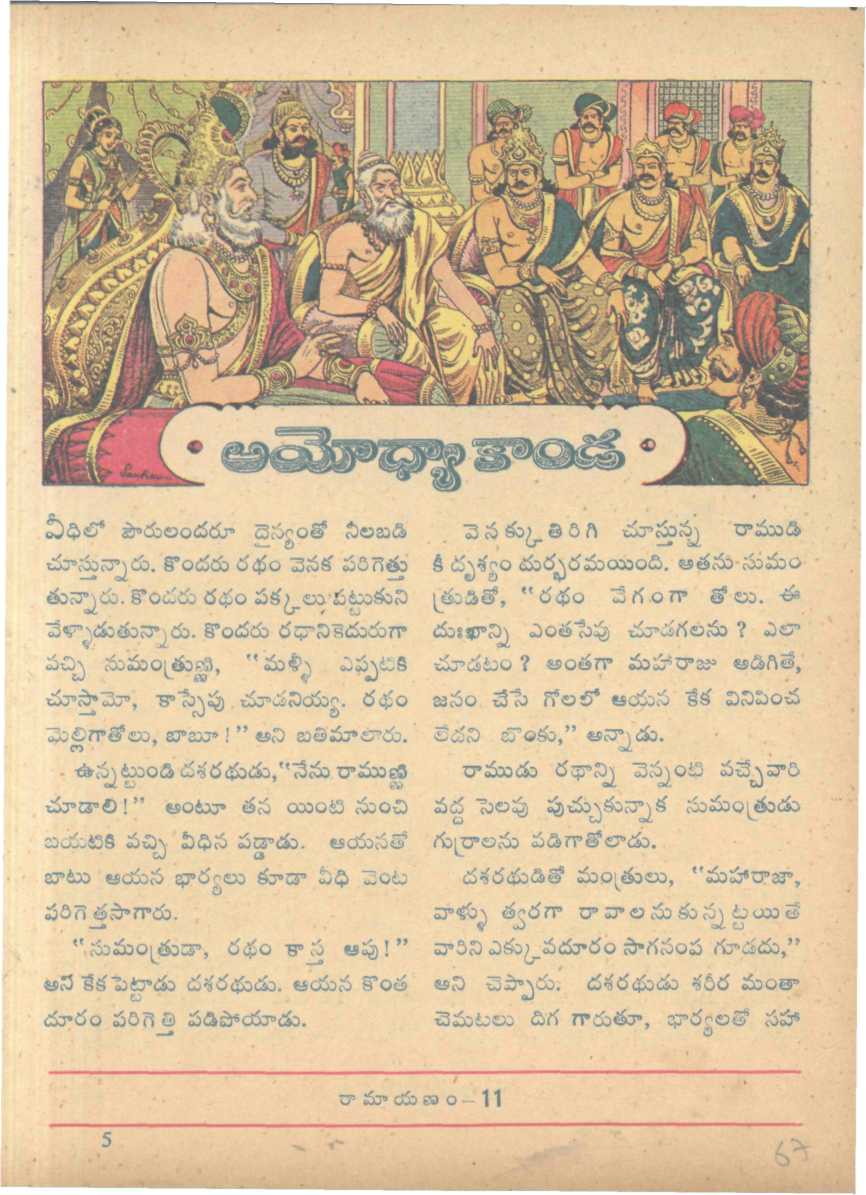 అయోధ్యాకాండ
Sankar
వీధిలో పౌరులందరూ దైన్యంతో నీలబడి
చూస్తున్నారు. కొందరు రథం వెనక పరిగెత్తు
తున్నారు. కొందరు రథం పక్కలు పట్టుకుని
వేళ్ళాడుతున్నారు. కొందరు రధానికెదురుగా
వచ్చి సుమంత్రుణ్ణి, “మళ్ళీ ఎప్పటికి
చూస్తామో, కాస్సేపు చూడనియ్య. రథం
మెల్లిగాతోలు, బాబూ!” అని బతిమాలారు.
ఉన్నట్టుండి దశరథుడు, “నేను రాముణ్ణి
చూడాలి!” అంటూ తన యింటి నుంచి
బయటికి వచ్చి వీధిన పడ్డాడు. ఆయనతో
బాటు ఆయన భార్యలు కూడా వీధి వెంట
పరిగెత్తసాగారు.
“సుమంత్రుడా, రథం కాస్త ఆపు!”
అని కేక పెట్టాడు దశరథుడు. ఆయన కొంత
దూరం పరిగెత్తి పడిపోయాడు.
వెనక్కు తిరిగి చూస్తున్న రాముడి
కీ దృశ్యం దుర్భరమయింది. అతను సుమం
త్రుడితో, “రథం వేగంగా తోలు. ఈ
దుఃఖాన్ని ఎంతసేపు చూడగలను? ఎలా
చూడటం? అంతగా మహారాజు అడిగితే,
జనం చేసే గోలలో ఆయన కేక వినిపించ
లేదని బొంకు,” అన్నాడు.
రాముడు రథాన్ని వెన్నంటి వచ్చేవారి
వద్ద సెలవు పుచ్చుకున్నాక సుమంత్రుడు
గుర్రాలను వడిగాతోలాడు.
దశరథుడితో మంత్రులు, “మహారాజా,
వాళ్ళు త్వరగా రావాలనుకున్నట్టయితే
వారిని ఎక్కువదూరం సాగనంప గూడదు,”
అని చెప్పారు. దశరథుడు శరీర మంతా
చెమటలు దిగ గారుతూ, భార్యలతో సహా
రామాయణం—11
5
67